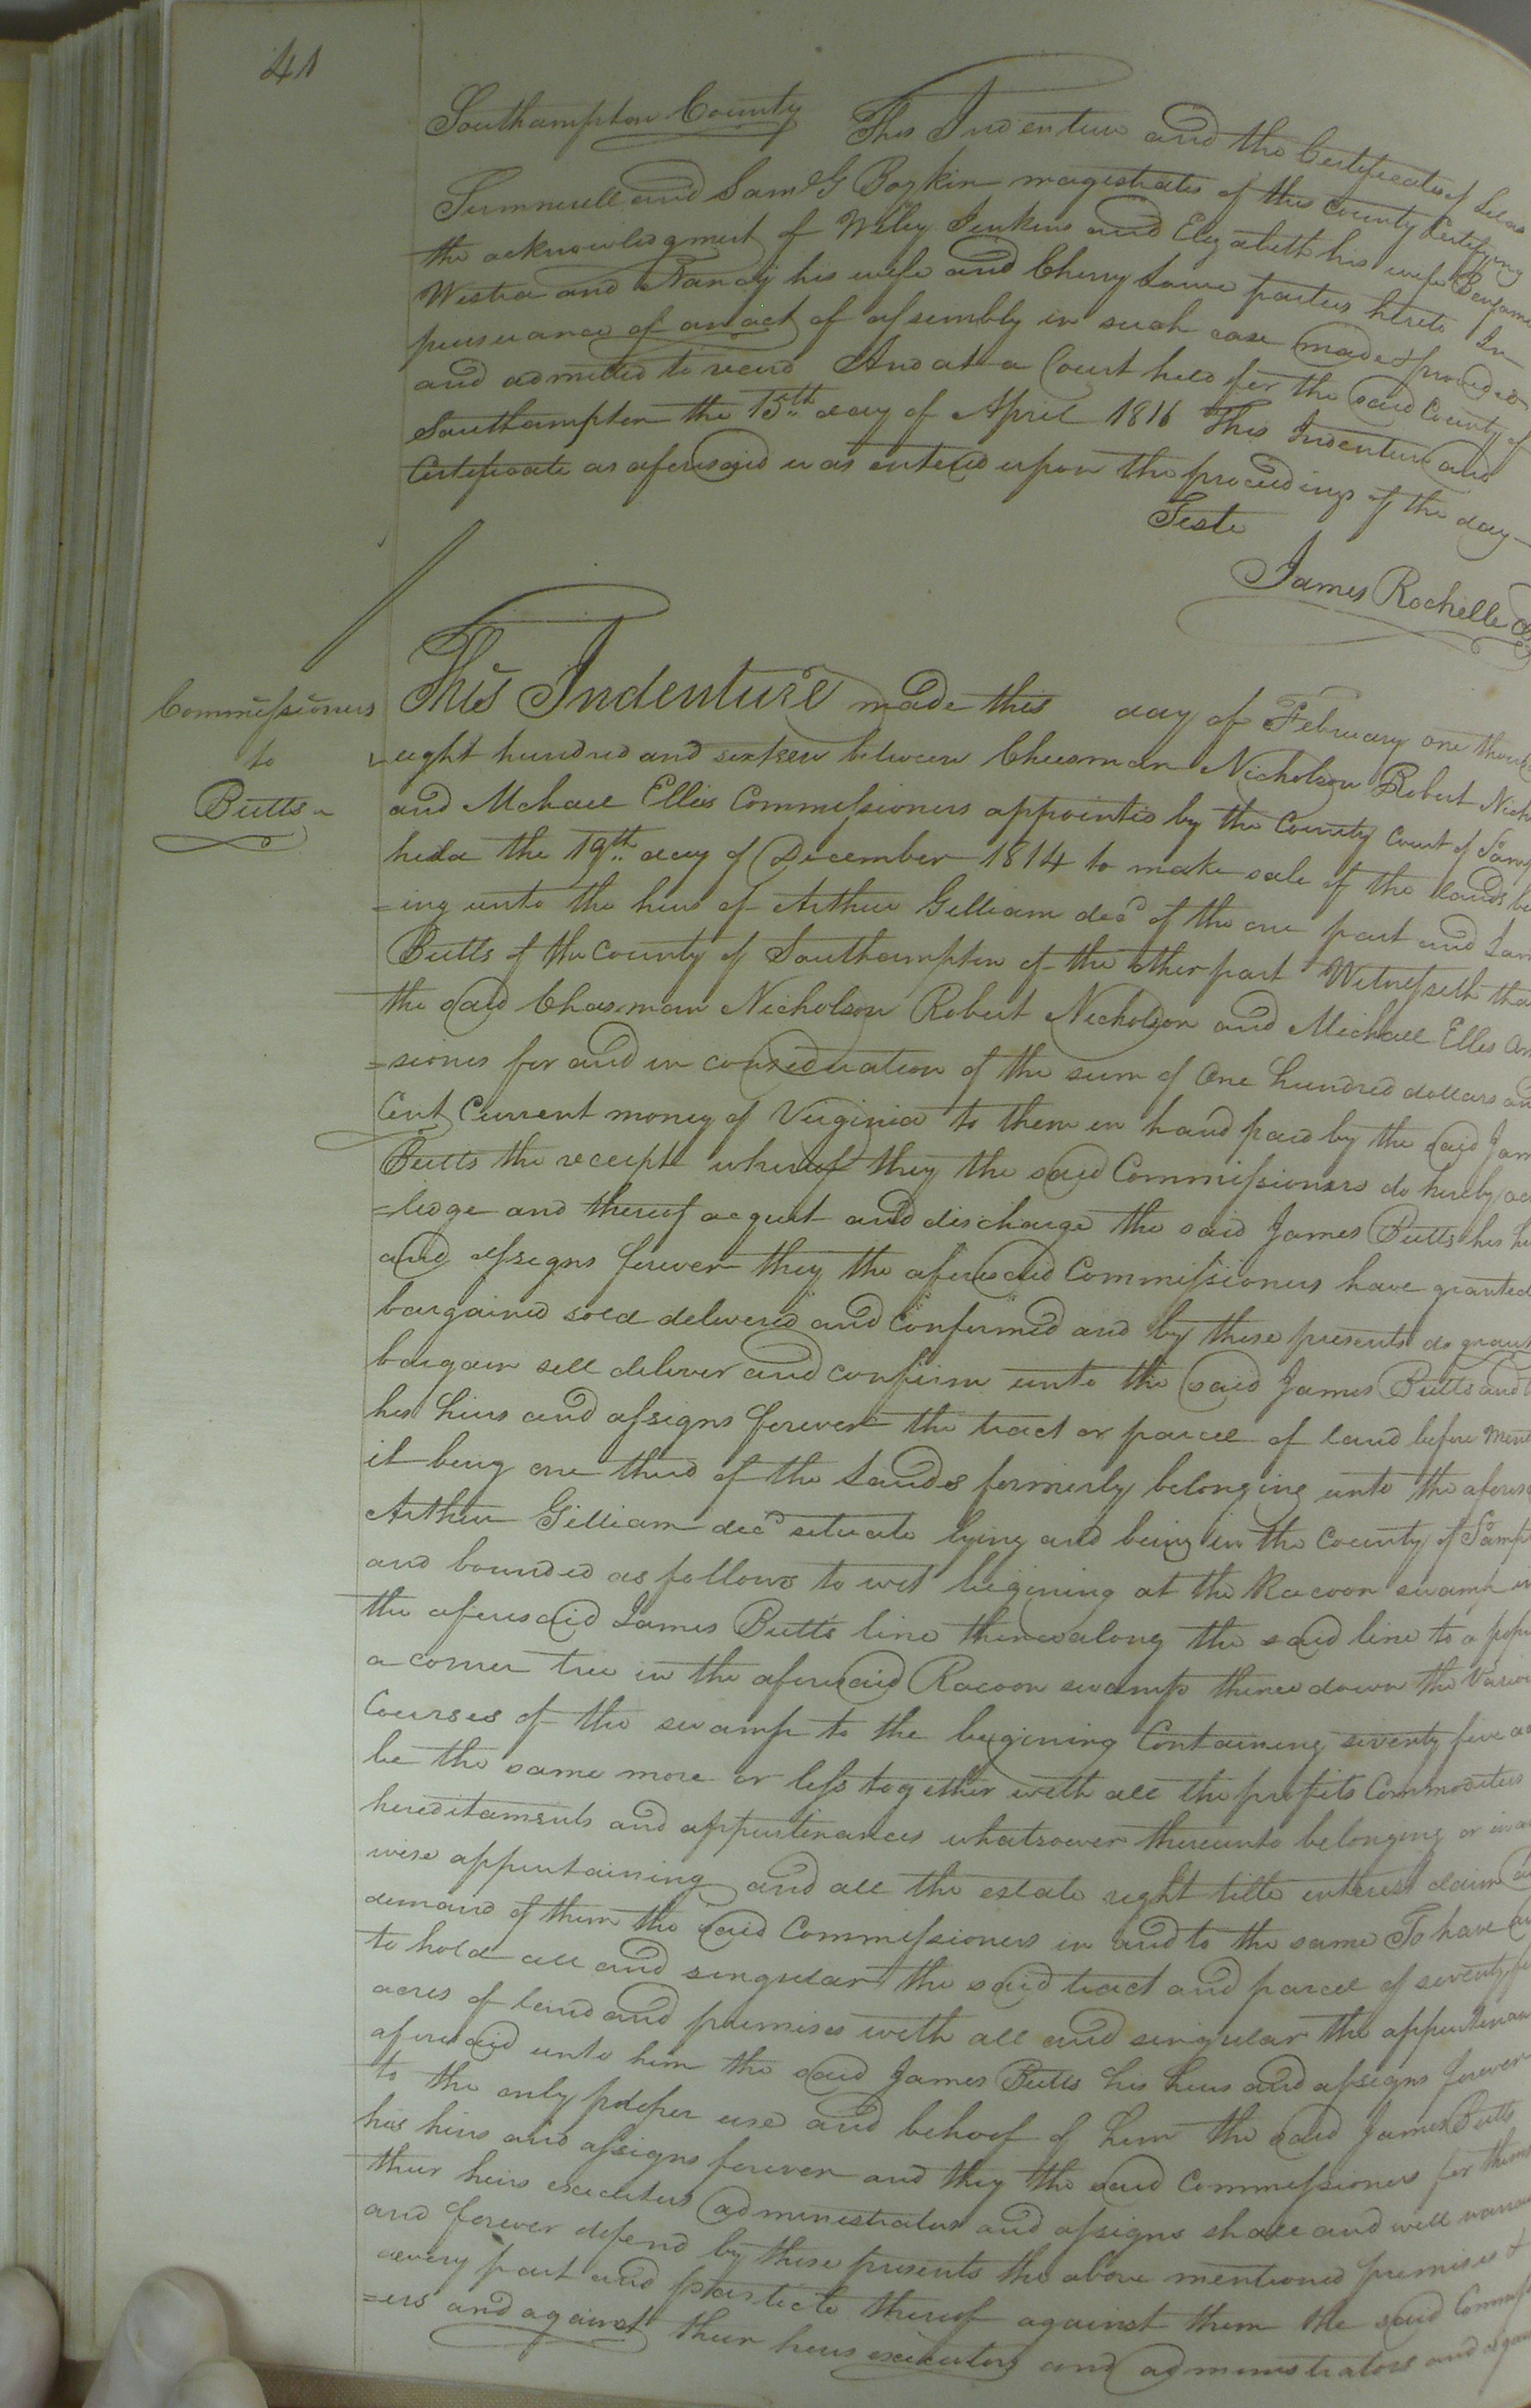 41
Southampton County This Indenture and the Certificate of Silas
Summerell and Saml G Boykin magistrates of this County Certifying
the acknowledgment of Wiley Jenkins and Elizabeth his wife Benjamin
Westra and Nancy his wife and Cherry Love parties hereto In
pursuance of an act of assembly in such case made & provided
and admitted to record And at a Court held for the said County of
Southampton the 15th day of April 1816 This Indenture and
Certificate as aforesaid was entered upon the proceedings of the day
Teste
James Rochelle
Commissioners
to
Butts
This Indenture made this day of February one thous
eight hundred and sixteen between Cheasman Nicholson Robert Nich
and Mchael Ellis Commissioners appointed by the County Court of
held the 19th day of December 1814 to make sale of the lands be
=ing unto the heirs of Arthur Gilliam decd of the one part and Jam
Butts of the County of Southampton of the other part Witnesseth tha
the said Cheasman Nicholson Robert Nicholson and Michael Ellis
=siones for and in consideration of the sum of One hundred dollars
Cent Current money of Virginia to them in hand paid by the said Jam
Butts the receipt whereof they the said Commissioners do hereby ac
=ledge and thereof acquit and discharge the said James Butts his he
and assigns forever they the aforesaid Commissioners have granted
bargained sold delivered and confirmed and by these presents do grant
bargain sell deliver and confirm unto the said James Butts and
his heirs and assigns forever the tract or parcel of land before Ment
it being one third of the Lands formerly belonging unto the afores
Arthur Gilliam decd situate lying and being in the County of
and bounded as follows to wit begining at the Racoon swamp in
the aforesaid James Butts line thence along the said line to a
a corner tree in the aforesaid Racoon swamp thence down the Variou
Courses of the swamp to the begining Containing seventy five ac
be the same more or less together with all the profits Commodities
hereditaments and appurtenances whatsoever thereunto belonging or in
wise appurtaining and all the estate right title interest claim
demand of them the said Commissioners in and to the same To have
to hold all and singular the said tract and parcel of seventy
acres of land and premises with all and singular the appurtenan
aforesaid unto him the said James Butts his heirs and assigns forever
to the only proper use and behoof of him the said James Butts
his heirs and assigns forever and they the said Commissioners for thems
their heirs executors administrators and assigns shall and will warra
and forever defend by these presents the above mentioned premises &
every part and particle thereof against them the said Commiss
=ers and against their heirs executors and administrators and again